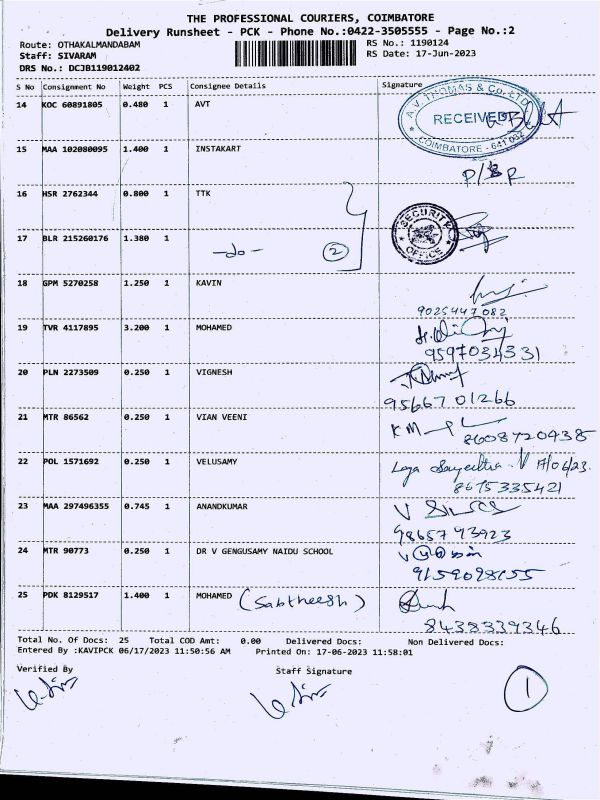 THE PROFESSIONAL COURIERS, COIMBATORE
Delivery Runsheet - PCK - Phone No.:0422-3505555 - Page No.:2
Route: OTHAKALMANDABAM RS No.: 1190124
Staff: SIVARAM RS Date: 17-Jun-2023
DRS No.: DCJB119012402
S No Consignment No Weight PCS Consignee Details Signature
14 KOC 60891805 0.480 1 AVT
A.V. THOMAS & Co. LTD.
RECEIVED
COIMBATORE - 641 032
15 MAA 102080095 1.400 1 INSTAKART
16 HSR 2762344 0.800 1 TTK
SECURITY
OFFICE
17 BLR 215260176 1.380 1 -do- 2
18 GPM 5270258 1.250 1 KAVIN
9025447082
19 TVR 4117895 3.200 1 MOHAMED
9597034331
20 PLN 2273509 0.250 1 VIGNESH
9566701266
21 MTR 86562 0.250 1 VIAN VEENI
8608720438
22 POL 1571692 0.250 1 VELUSAMY
17/06/23.
8675335421
23 MAA 297496355 0.745 1 ANANDKUMAR
9865793923
24 MTR 90773 0.250 1 DR V GENGUSAMY NAIDU SCHOOL
9159098155
25 PDK 8129517 1.400 1 MOHAMED (Sabtheesh)
8438339346
Total No. Of Docs: 25 Total COD Amt: 0.00 Delivered Docs: Non Delivered Docs:
Entered By :KAVIPCK 06/17/2023 11:50:56 AM Printed On: 17-06-2023 11:58:01
Verified By Staff Signature
1